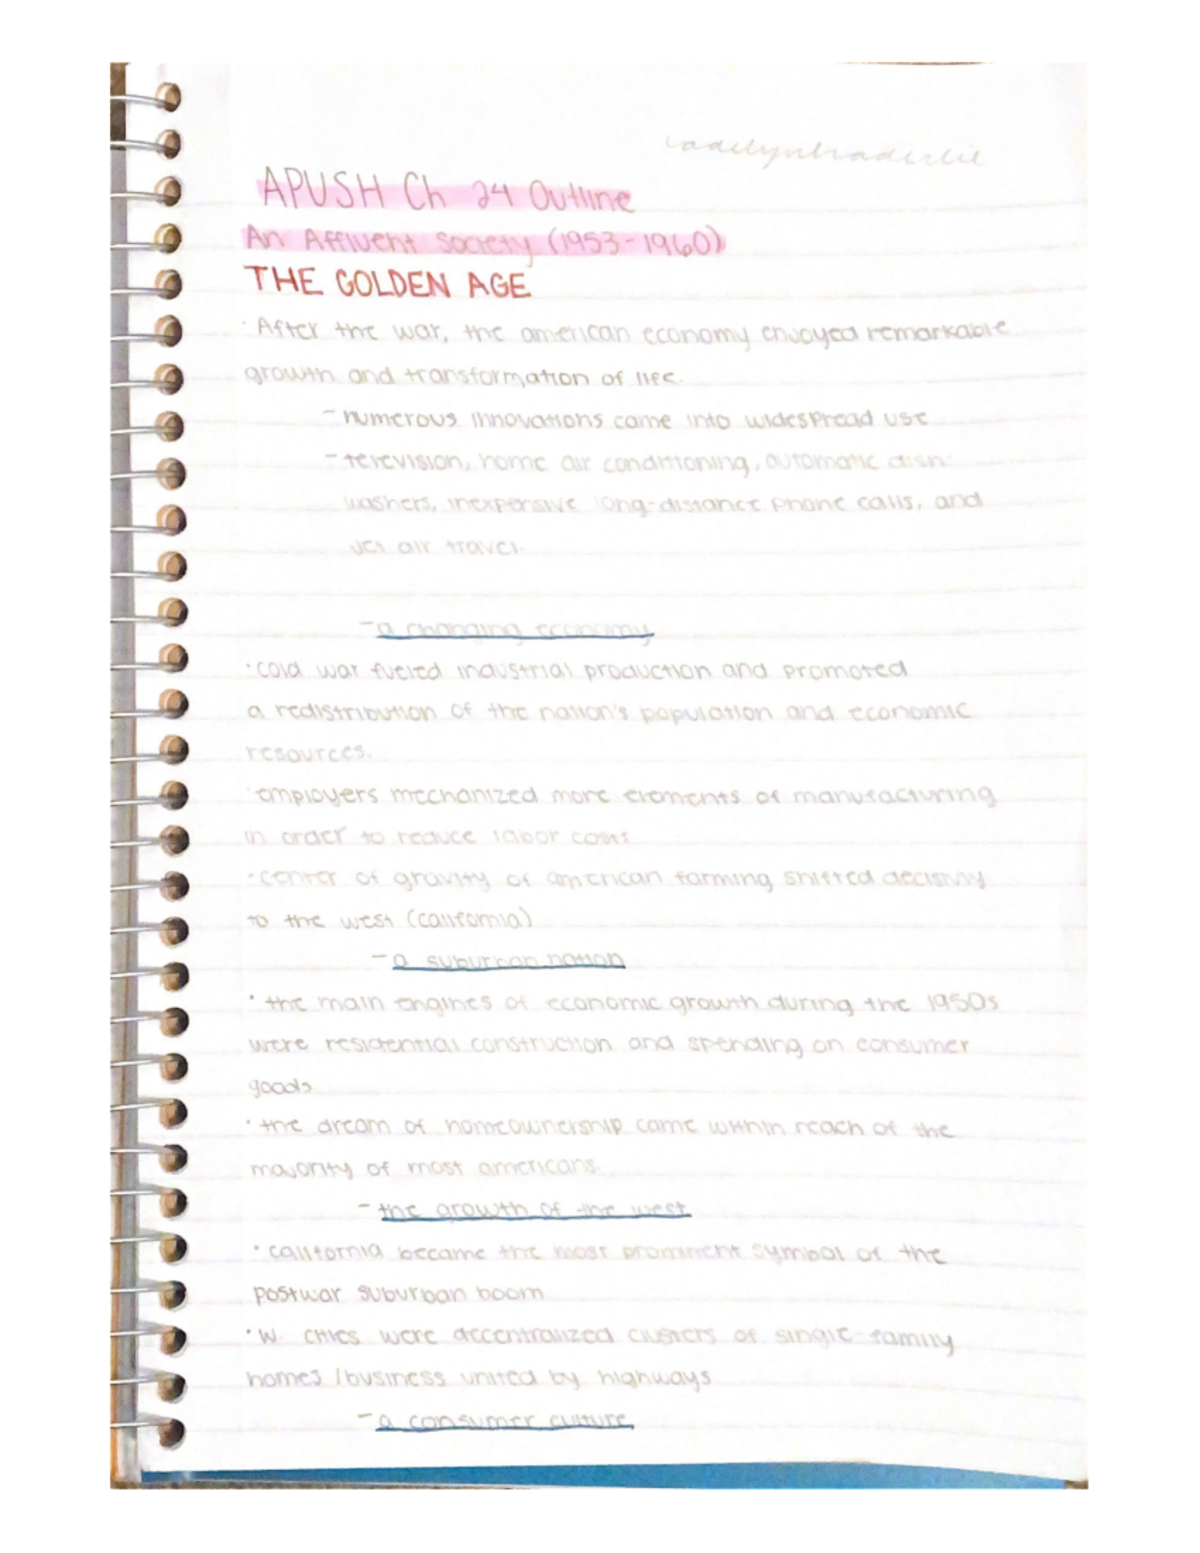 APUSH Ch 24 Outline
An Affluent Society (1953-1960)
THE GOLDEN AGE
· After the war, the american economy enjoyed remarkable
growth and transformation of life.
- numerous innovations came into widespread use
- television, home air conditioning, automatic dish-
washers, inexpensive long-distance phone calls, and
jet air travel.
- a changing economy
· cold war fueled industrial production and promoted
a redistribution of the nation's population and economic
resources.
· employers mechanized more elements of manufacturing
in order to reduce labor costs
· center of gravity of american farming shifted decisivly
to the west (california)
- a suburban nation
· the main engines of economic growth during the 1950s
were residential construction and spending on consumer
goods
· the dream of homeownership came within reach of the
majority of most americans.
- the growth of the west
· california became the most prominent symbol of the
postwar suburban boom
· W. cities were decentralized clusters of single-family
homes / business united by highways
- a consumer culture